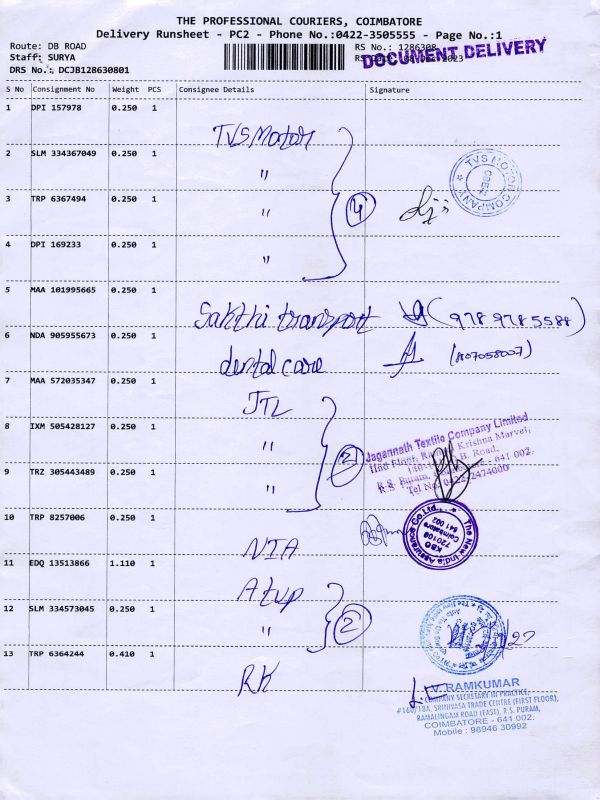 THE PROFESSIONAL COURIERS, COIMBATORE
Delivery Runsheet - PC2 - Phone No.:0422-3505555 - Page No.:1
Route: DB ROAD
RS No.: 1286308
DOCUMENT DELIVERY
Staff: SURYA
DRS No.: DCJB128630801
S No Consignment No Weight PCS Consignee Details Signature
1 DPI 157978 0.250 1
TVS Motor
2 SLM 334367049 0.250 1
"
TVS MOTOR COMPANY
3 TRP 6367494 0.250 1
"
4
4 DPI 169233 0.250 1
"
5 MAA 101995665 0.250 1
Sakthi transport (978 978 5588)
6 NDA 905955673 0.250 1
dental care
7 MAA 572035347 0.250 1
JTL
8 IXM 505428127 0.250 1
"
2
Jagannath Textile Company Limited
Krishna Marvel,
B. Road,
R.S. Puram, 641 002.
Tel No. 0422-2474000
9 TRZ 305443489 0.250 1
"
10 TRP 8257006 0.250 1
NIA
The New India Assurance Co. Ltd.,
KBO
720100
Coimbatore
641 002
11 EDQ 13513866 1.110 1
12 SLM 334573045 0.250 1
"
2
13 TRP 6364244 0.410 1
RK
V. RAMKUMAR
COMPANY SECRETARY IN PRACTICE,
#160/18A, SRINIVASA TRADE CENTRE (FIRST FLOOR),
RAMALINGAM ROAD (EAST), R.S. PURAM,
COIMBATORE - 641 002.
Mobile : 98946 30992